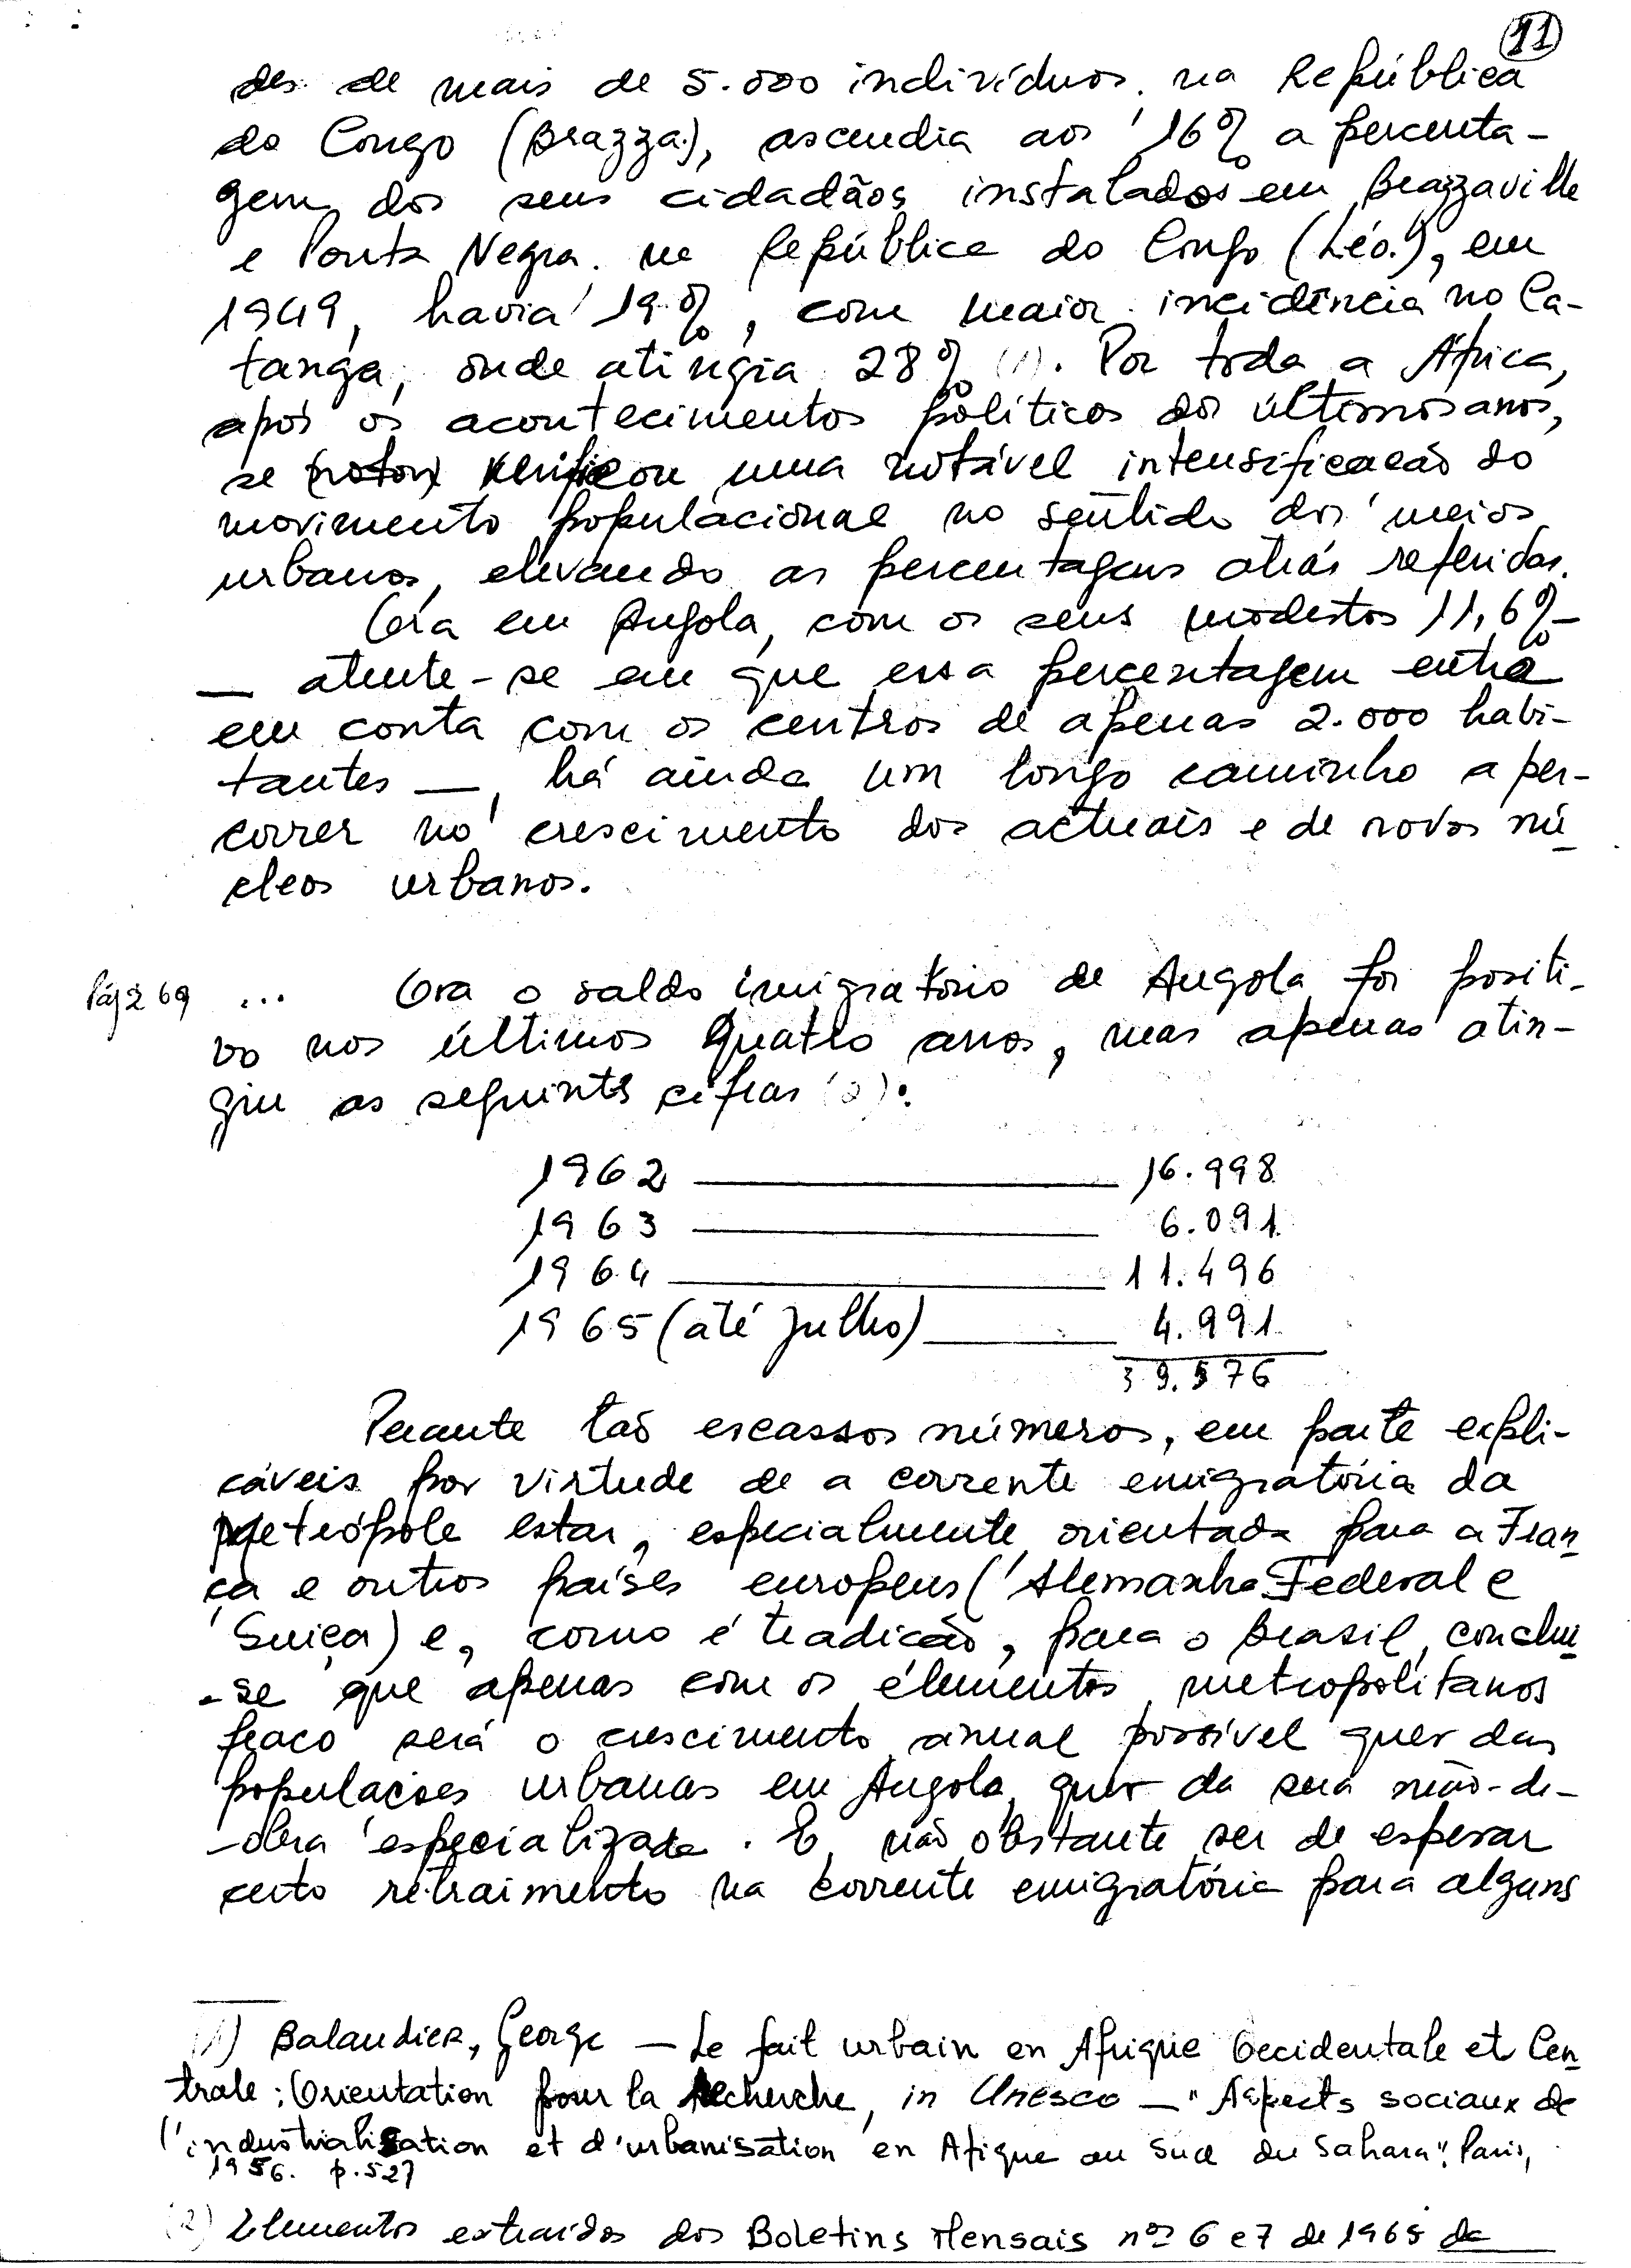 11
des de mais de 5.000 indivíduos. na República
do Congo (Brazza.), ascendia aos 16% a percenta-
gem dos seus cidadãos instalados em Brazzaville
e Ponta Negra. na República do Congo (Léo.), em
1949, havia 19%, com maior incidência no Ca-
tanga, onde atingia 28% (1). Por toda a África,
após os acontecimentos políticos dos últimos anos,
se (notou) verificou uma notável intensificação do
movimento populacional no sentido dos meios
urbanos, elevando as percentagens atrás referidas.
Ora em Angola, com os seus modestos 11,6% -
— atente-se em que essa percentagem entra
em conta com os centros de apenas 2.000 habi-
tantes —, há ainda um longo caminho a per-
correr no crescimento dos actuais e de novos nú
cleos urbanos.
Pág 269 ... Ora o saldo imigratório de Angola foi positi-
vo nos últimos quatro anos, mas apenas atin-
giu as seguintes cifras (2):
1962 ——— 16.998
1963 ——— 6.091
1964 ——— 11.496
1965 (até Julho) ——— 4.991
39.576
Perante tão escassos números, em parte expli-
cáveis por virtude de a corrente emigratória da
Metrópole estar, especialmente orientada para a Fran
ça e outros países europeus (Alemanha Federal e
Suiça) e, como é tradição, para o Brasil, conclui
-se que apenas com os elementos metropolitanos
fraco será o crescimento anual possível quer das
populações urbanas em Angola, quer da sua mão-de-
-obra especializada. E, não obstante ser de esperar
certo retraimento na corrente emigratória para alguns
(1) Balandier, George — Le fait urbain en Afrique Occidentale et Cen
trale: Orientation pour la Recherche, in Unesco — "Aspects sociaux de
l'industrialisation et d'urbanisation en Afrique au Sud du Sahara", Paris,
1956. p. 527
(2) Elementos extraídos dos Boletins Mensais nºs 6 e 7 de 1965 da